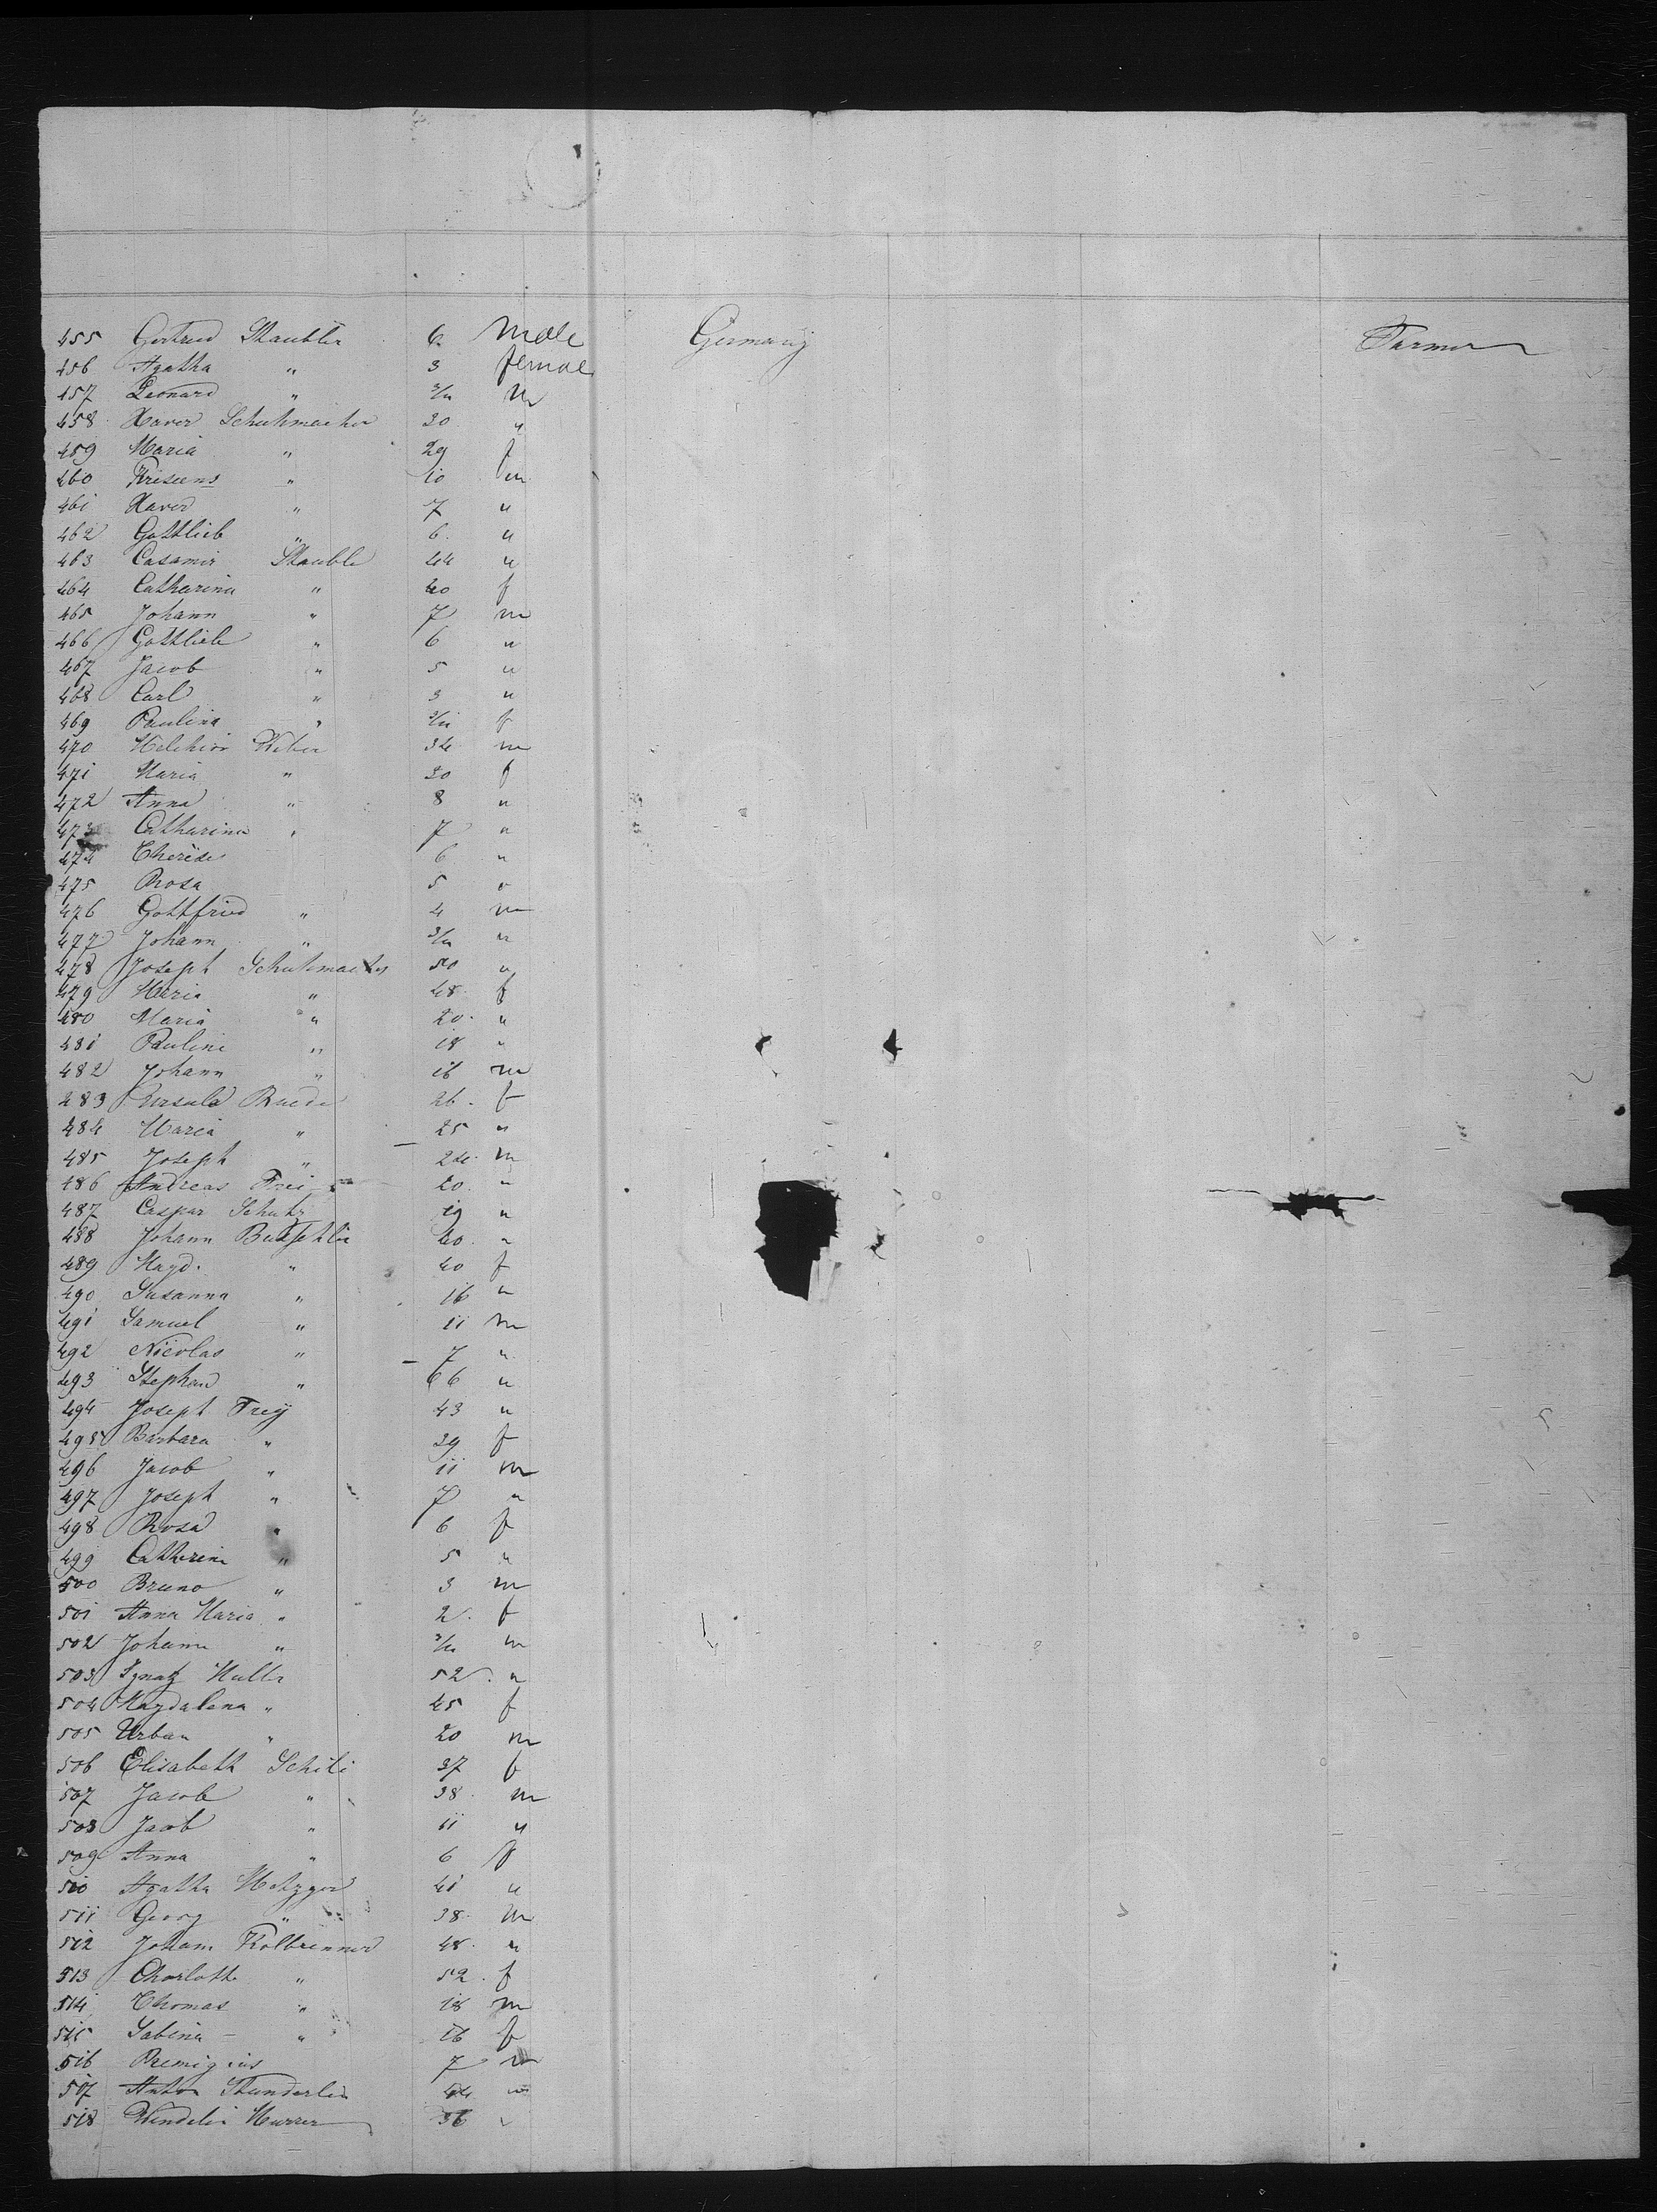 455 Gertrud Staubler 6 Male Germany Farmer
456 Agatha " 3 female
457 Leonard " 3/12 m
458 Xaver Schuhmacher 30 "
459 Maria " 29 f
460 Kriscens " 10 m
461 Xaver " 7 "
462 Gottlieb " 6 "
463 Casamir Stauble 44 "
464 Catharina " 40 f
465 Johann " 7 m
466 Gottlieb " 6 "
467 Jacob " 5 "
468 Carl " 3 "
469 Paulina " f
470 Melchior Weber 34 m
471 Maria " 30 f
472 Anna " 8 "
473 Catharina " 7 "
474 Therese 6 "
475 Rosa 5 "
476 Gottfried " 4 m
477 Johann " 3/12 "
478 Joseph Schuhmacher 50 "
479 Maria " 48 f
480 Maria " 20 "
481 Pauline " 18 "
482 Johann " 16 m
283 Ursula 26 f
484 Maria " 25 "
485 Joseph " 24 m
486 Andreas Frei 20 "
487 Caspar Schutz 19 "
488 Johann 40 "
489 Magd. " 40 f
490 Susanna " 16 "
491 Samuel " 11 m
492 Nicolas " 7 "
493 Stephan " 66 "
494 Joseph Frey 43 "
495 Barbara " 39 f
496 Jacob " 11 m
497 Joseph " 7 "
498 Rosa " 6 f
499 Catherine " 5 "
500 Bruno " 3 m
501 Anna Maria " 2 f
502 Johann " 3/12 m
503 Ignatz Muller 52 "
504 Magdalena " 45 f
505 Urban " 20 m
506 Elisabeth Schili 37 f
507 Jacob " 38 m
508 Jacob " 11 "
509 Anna " 6 f
510 Agatha Metzger 41 "
511 Georg " 38 m
512 Johann Kolbrenner 48 "
513 Charlotte " 52 f
514 Thomas " 18 m
515 Sabina " 16 f
516 Remigius 7 m
517 Anton Thunderlin 44 "
518 Wendelin Murrer 36 "